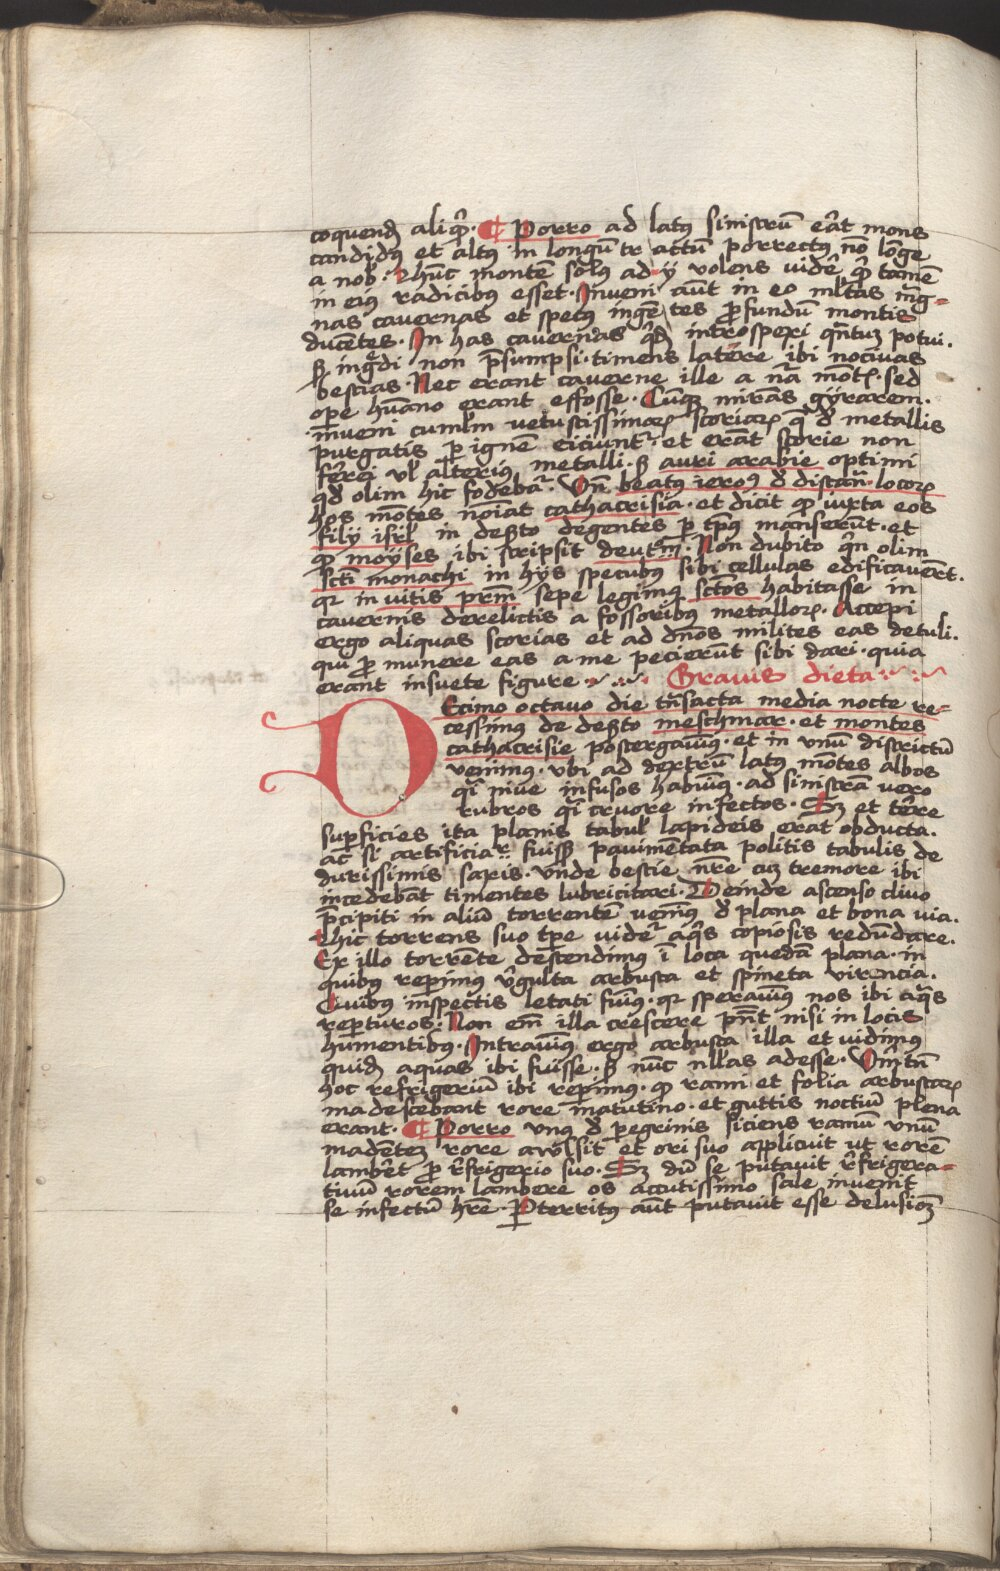 coquend aliqͥ. ¶ Porro ad latꝰ sinistrū erat mons
candidꝰ et altꝰ in longū tractum porrectꝰ nō lōge
a nob. Hūc montē solus adij volens videre qͥ tamē
in eiꝰ radicibus esset. Inveni aūt in eo mltas mag-
nas cavernas et specꝰ ingētes profundū montis
ducētes. In has cavernas introspexi qntum potui.
sꝫ ingͣdi non p̄sumpsi. timens latere ibi nocivas
bestias. Nec erant caverne ille a nā mōtꝭ. sed
ope hūano erant effosse. Cūqꝫ mirans gyrarem.
inveni cumlm vetustissimarꝫ scoriarꝫ que d metallis
purgatis p ignē eiciunt̉. et erāt scorie non
ferrei vl alterius metalli. sꝫ auri arabie optimi
qd olim hic fodebat̉. Vn̄ beatꝰ ieroꝰ d distan. locorꝫ
hos mōtes noīat cathacrisia. et dicit qͫ iuxta eos
filij isrl in desto degentes p tpꝰ manserūt. et
qͫ moyses ibi scripsit deutm̄. Non dubito qn olim
scti monachi in hijs specubꝰ sibi cellulas edificaverūt.
qr in vitis prm̄ sepe legimꝰ sctōs habitasse in
cavernis derelictis a fossoribus metallorꝫ. Accepi
ergo aliquas scorias et ad dnos milites eas detuli.
qui pro munere eas a me pecierūt sibi dari. quia
erant insuete figure. Gravis dieta.
Decimo octavo die trāsacta media nocte re-
cessimꝰ de desto meschmar. et montes
cathacrisie postergavimꝰ. et in vnū districtū
venimꝰ. vbi ad dextrū latꝰ mōtes albos
qͣi nive infusos habuimꝰ. ad sinistrā vero
rubros qͣi cruore infectos. Sꝫ et terre
superficies ita planis tabul lapideis erat obducta.
ac si artificiar̉ fuissꝫ pavimētata politis tabulis de
durissimis saxis. vnde bestie nr̄e cum tremore ibi
incedebāt timentes lubricitari. Deinde ascenso clivo
p̄cipiti in aliū torrentē venimꝰ d plana et bona via.
Hic torrens suo tpe videt̉ aqͥs copiosis redūdare.
Ex illo torrēte descendimꝰ ī loca quedā plana. in
quibus reperimꝰ vgulta arbusta et spineta virencia.
Quibus inspectis letati fuimꝰ. qr speravimꝰ nos ibi aqͣs
reperturos. Non em̄ illa crescere pn̄t nisi in locis
humentibꝰ. Intravimꝰ ergo arbusta illa et vidimꝰ
quidē aquas ibi fuisse. sꝫ nūc nllas adesse. Vnū tn̄
hoc refrigeriū ibi reperimꝰ. qͫ rami et folia arbustarꝫ
madescebant rore matutino. et guttis noctiū plena
erant. ¶ Porro vnꝰ d peregrinis siciens ramū vnū
madētem rore avulsit et ori suo applicuit ut rorē
lamberet pro refrigerio suo. Sꝫ dū se putavit refrigera-
tivū rorem lambere os accutissimo sale invenit
se infectū hr̄e. Perterritꝰ aūt putavit esse delusioꝫ